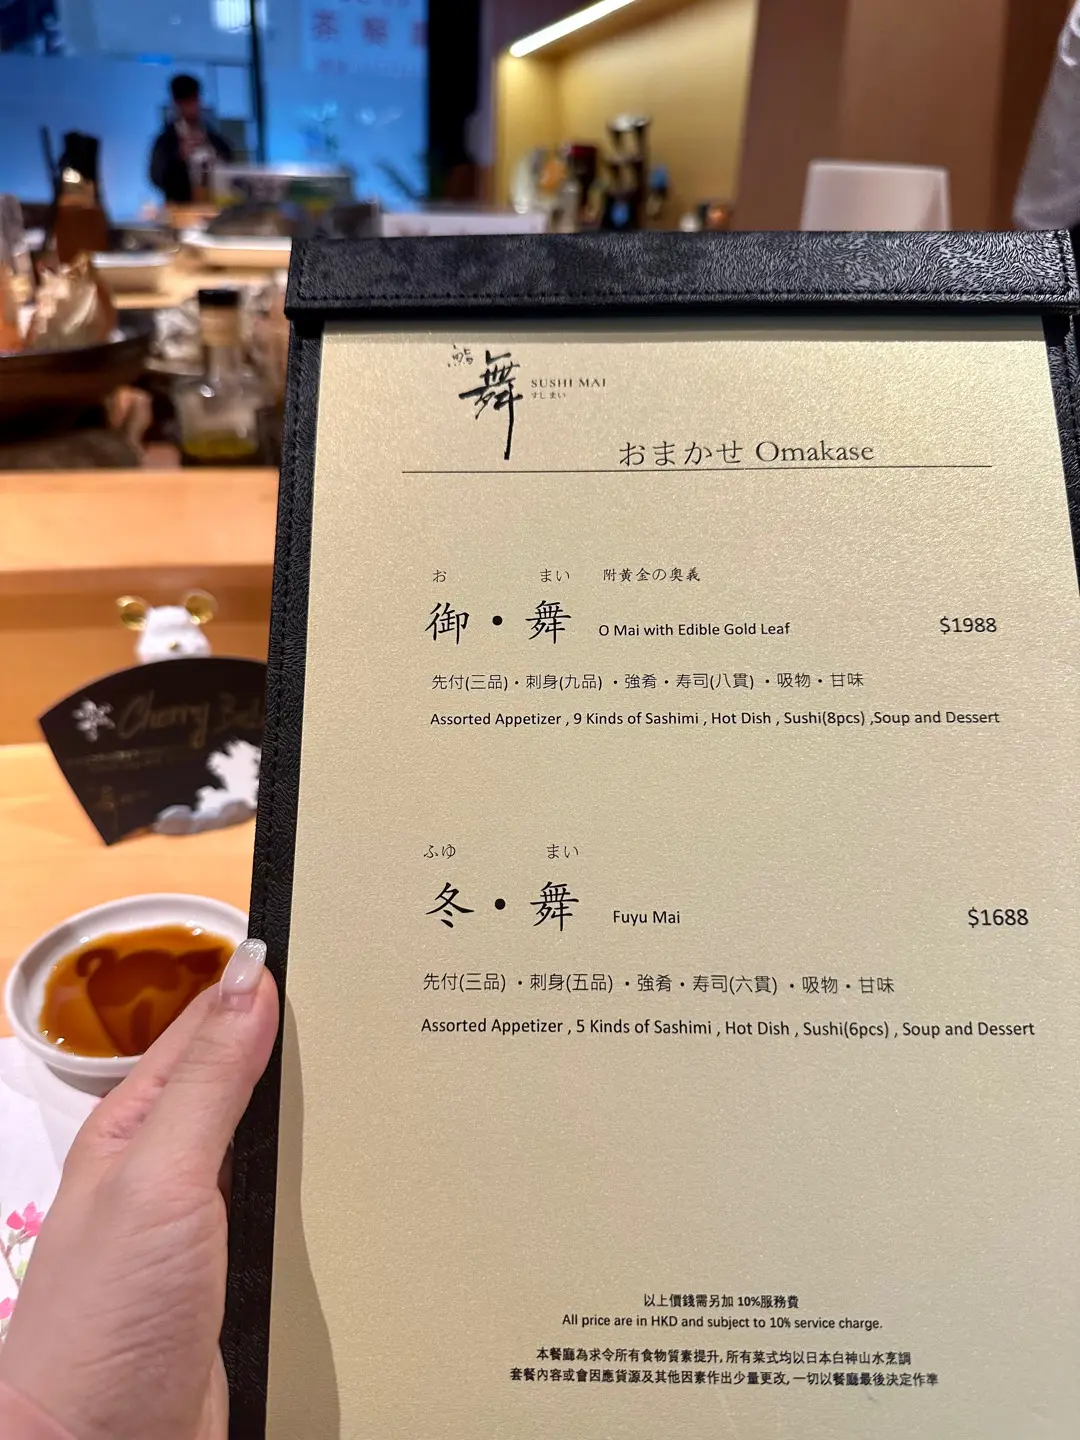 茶餐
鮨 舞
SUSHI MAI
すし まい
おまかせ Omakase
お まい 附黃金の奧義
御・舞 O Mai with Edible Gold Leaf $1988
先付(三品)・刺身(九品)・強肴・寿司(八貫)・吸物・甘味
Assorted Appetizer , 9 Kinds of Sashimi , Hot Dish , Sushi(8pcs) ,Soup and Dessert
ふゆ まい
冬・舞 Fuyu Mai $1688
先付(三品)・刺身(五品)・強肴・寿司(六貫)・吸物・甘味
Assorted Appetizer , 5 Kinds of Sashimi , Hot Dish , Sushi(6pcs) , Soup and Dessert
以上價錢需另加 10%服務費
All price are in HKD and subject to 10% service charge.
本餐廳為求令所有食物質素提升, 所有菜式均以日本白神山水烹調
套餐內容或會因應貨源及其他因素作出少量更改, 一切以餐廳最後決定作準
Cherry